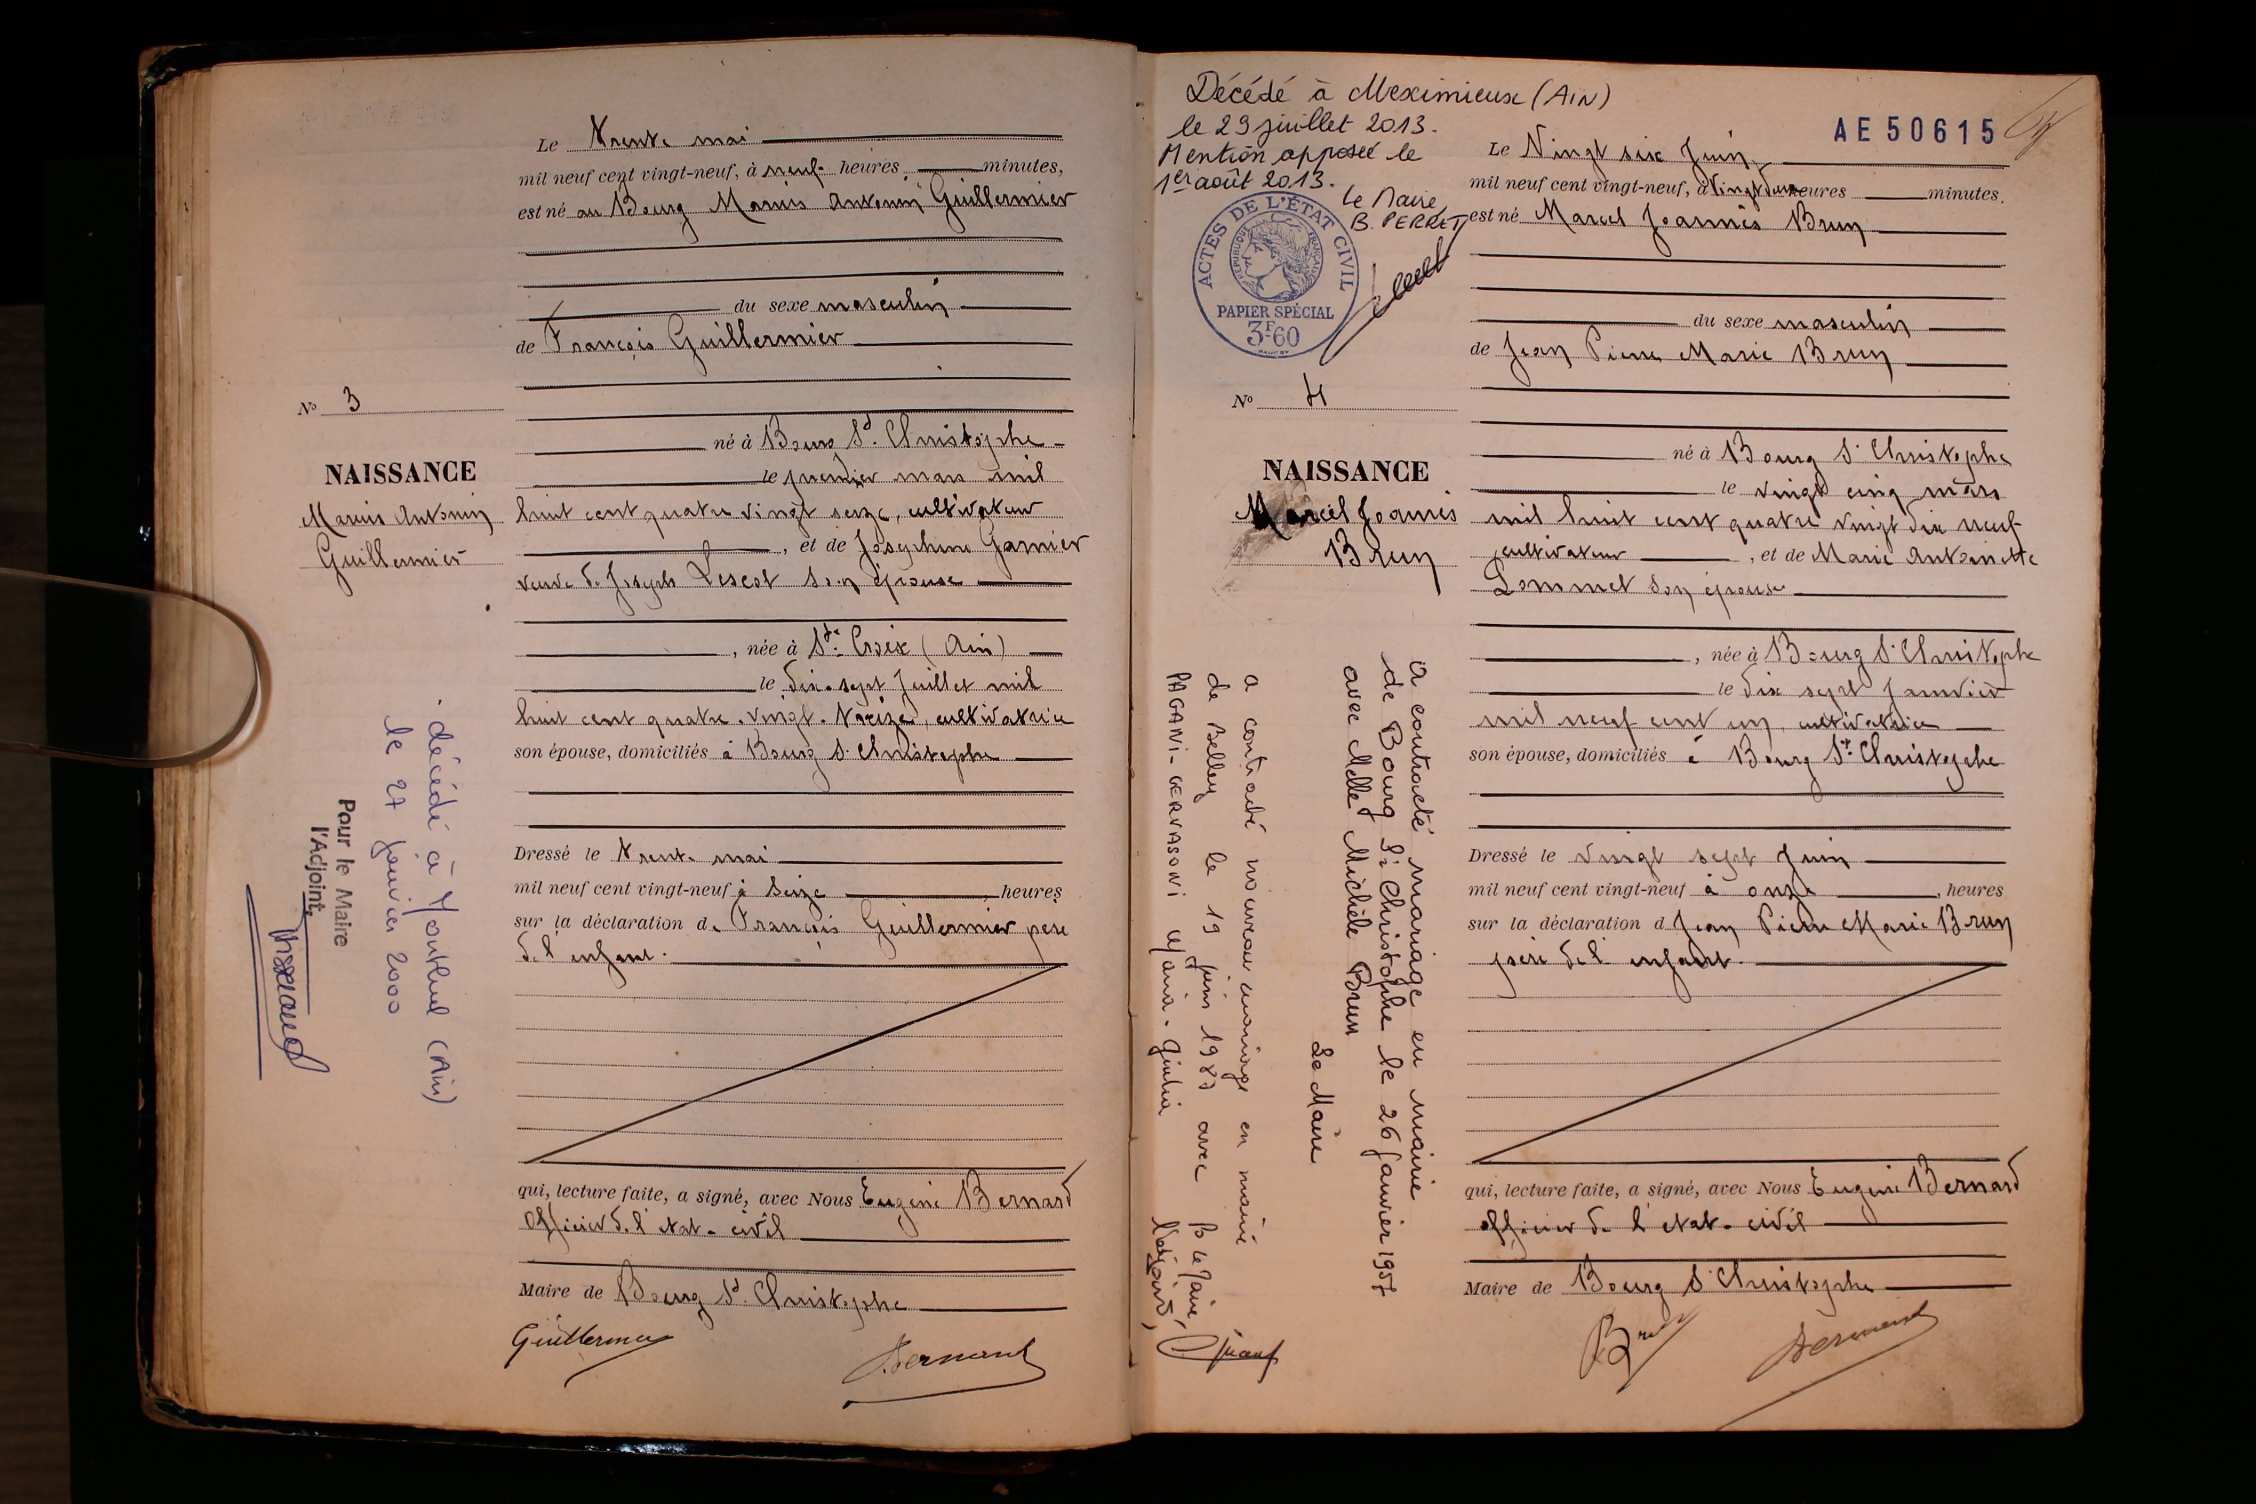 Le Trente mai
mil neuf cent vingt-neuf, à neuf heures minutes,
est né au Bourg Marius Antonin Guillermier
du sexe masculin
de François Guillermier
né à Bourg St. Christophe
le premier mars mil
huit cent quatre vingt seize, cultivateur
, et de Josephine Garnier
veuve de Joseph Lescot son épouse
, née à Ste. Croix (Ain)
le dix-sept Juillet mil
huit cent quatre-vingt-treize, cultivatrice
son épouse, domiciliés à Bourg St Christophe
Dressé le trente mai
mil neuf cent vingt-neuf à seize , heures
sur la déclaration de François Guillermier père
de l'enfant.
qui, lecture faite, a signé, avec Nous Eugène Bernard
officier de l'etat-civil
Maire de Bourg St. Christophe
Guillermier
Bernard
No 3
NAISSANCE
Marius Antonin
Guillermier
décédé à Montluel (Ain)
le 27 janvier 2000
Pour le Maire
l'Adjoint,
Décédé à Meximieux (AIN)
le 29 juillet 2013.
Mention apposée le
1er août 2013.
Le Maire
B. PERRET
ACTES DE L'ÉTAT CIVIL
RÉPUBLIQUE FRANÇAISE
PAPIER SPÉCIAL
3F60
No 4
NAISSANCE
Marcel Joannès
Brun
a contracté mariage en mairie
de Bourg St Christophe le 26 janvier 1957
avec Melle Michèle Brun
Le Maire
a contracté nouveau mariage en mairie
de Belley le 19 juin 1987 avec
PAGANI-GERVASONI Maria-Giulia
P. le Maire,
l'adjoint,
AE50615
Le Vingt six Juin
mil neuf cent vingt-neuf, à vingt deux heures minutes.
est né Marcel Joannès Brun
du sexe masculin
de Jean Pierre Marie Brun
né à Bourg St Christophe
le vingt cinq mars
mil huit cent quatre vingt dix neuf
cultivateur , et de Marie Antoinette
Pommet son épouse
, née à Bourg St Christophe
le dix sept janvier
mil neuf cent un, cultivatrice
son épouse, domiciliés à Bourg St. Christophe
Dressé le vingt sept Juin
mil neuf cent vingt-neuf à onze , heures
sur la déclaration d Jean Pierre Marie Brun
père de l'enfant.
qui, lecture faite, a signé, avec Nous Eugène Bernard
officier de l'etat-civil
Maire de Bourg St Christophe
Brun
Bernard